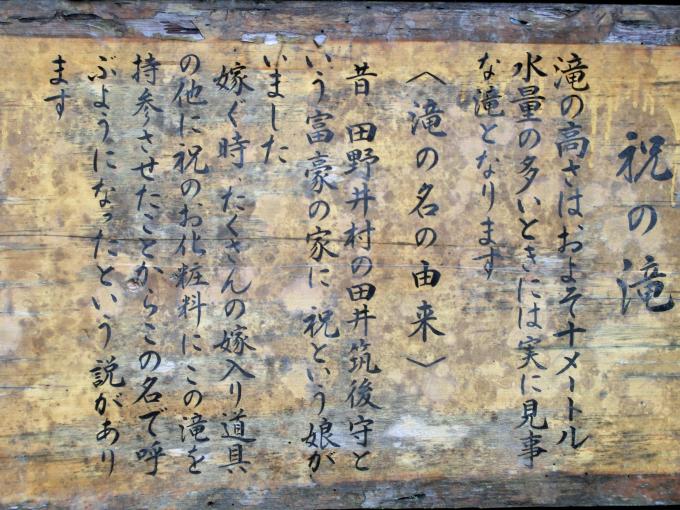 祝の滝
滝の高さはおよそ十メートル
水量の多いときには実に見事
な滝となります
〈滝の名の由来〉
昔 田野井村の田井筑後守と
いう富豪の家に 祝という娘が
いました
嫁ぐ時 たくさんの嫁入り道具
の他に祝のお化粧料にこの滝を
持参させたことからこの名で呼
ぶようになったという説があり
ます